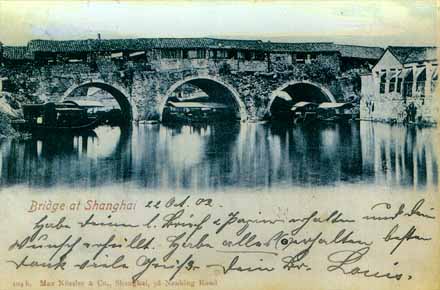 Bridge at Shanghai 22 Oct. 02.
Habe deinen l. Brief & Papier erhalten und Dein
Wunsch erfüllt. Habe alles erhalten besten
Dank viele Grüße Dein Br. Louis.
104 b. Max Nössler & Co., Shanghai, 38 Nanking Road